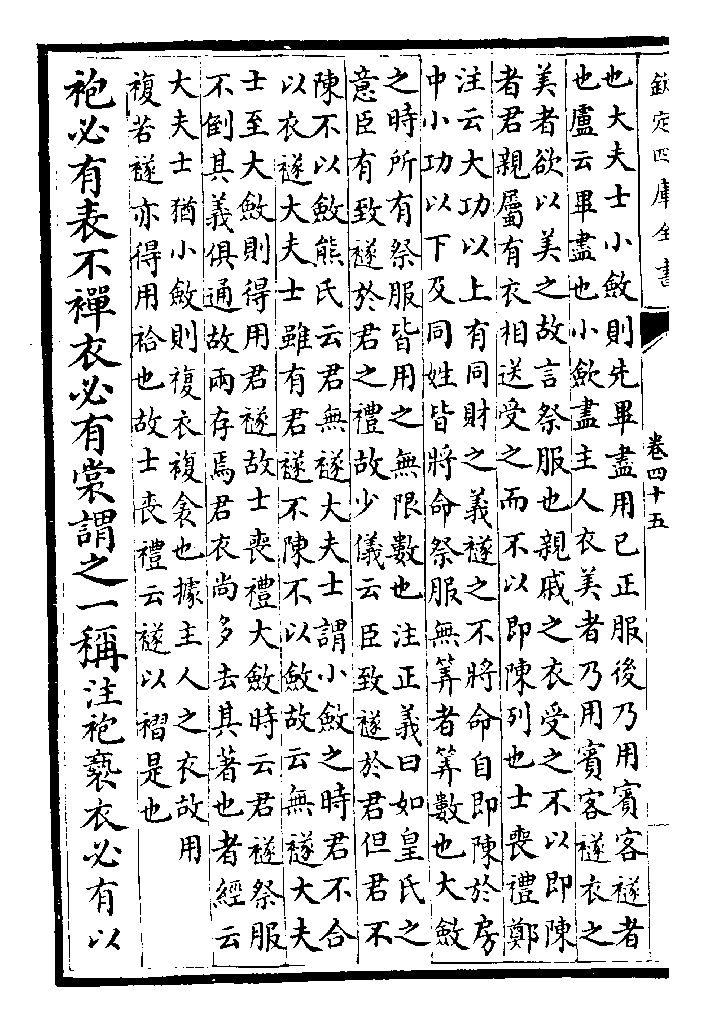 欽定四庫全書
卷四十五
也大夫士小斂則先畢盡用已正服後乃用賓客襚者
也盧云畢盡也小斂盡主人衣美者乃用賓客襚衣之
美者欲以美之故言祭服也親戚之衣受之不以即陳
者君親屬有衣相送受之而不以即陳列也士喪禮鄭
注云大功以上有同財之義襚之不將命自即陳於房
中小功以下及同姓皆將命祭服無筭者筭數也大斂
之時所有祭服皆用之無限數也注正義曰如皇氏之
意臣有致襚於君之禮故少儀云臣致襚於君但君不
陳不以斂熊氏云君無襚大夫士謂小斂之時君不合
以衣襚大夫士雖有君襚不陳不以斂故云無襚大夫
士至大斂則得用君襚故士喪禮大斂時云君襚祭服
不倒其義俱通故兩存焉君衣尚多去其著也者經云
大夫士猶小斂則複衣複衾也據主人之衣故用
複若襚亦得用袷也故士喪禮云襚以褶是也
袍必有表不襌衣必有裳謂之一稱注袍褻衣必有以